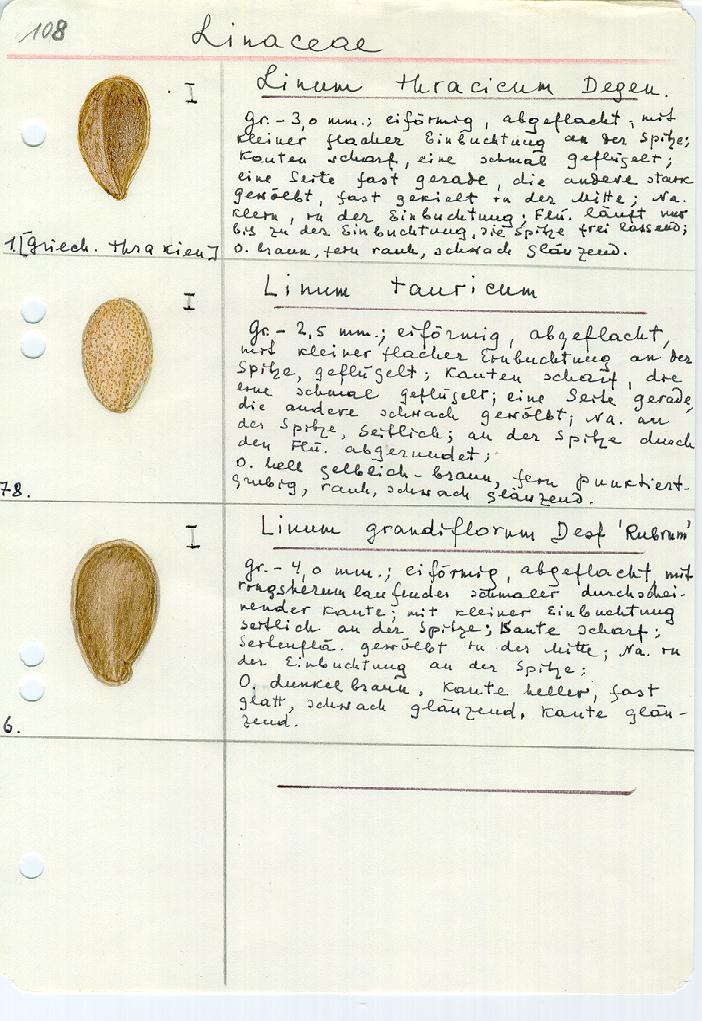 108
Linaceae
I
Linum thracicum Degen.
gr. - 3,0 mm.; eiförmig, abgeflacht, mit
kleiner flacher Einbuchtung an der Spitze;
Kanten scharf, eine schmal geflügelt;
eine Seite fast gerade, die andere stark
gewölbt, fast gekielt in der Mitte; Na.
klein, in der Einbuchtung; Flü. läuft nur
bis zu der Einbuchtung, die Spitze frei lassend;
O. braun, fein rauh, schwach glänzend.
1.[Griech. Thrakien]
I
Linum tauricum
gr. - 2,5 mm.; eiförmig, abgeflacht,
mit kleiner flacher Einbuchtung an der
Spitze, geflügelt; Kanten scharf, die
eine schmal geflügelt; eine Seite gerade,
die andere schwach gewölbt; Na. an
der Spitze, seitlich; an der Spitze durch
den Flü. abgerundet;
O. hell gelblich-braun, fein punktiert-
grubig, rauh, schwach glänzend.
78.
I
Linum grandiflorum Desf 'Rubrum'
gr. - 4,0 mm.; eiförmig, abgeflacht, mit
ringsherum laufender schmaler durchschei-
nender Kante; mit kleiner Einbuchtung
seitlich an der Spitze; Kante scharf;
Seitenflä. gewölbt in der Mitte; Na. in
der Einbuchtung an der Spitze;
O. dunkel braun, Kante heller, fast
glatt, schwach glänzend, Kante glän-
zend.
6.